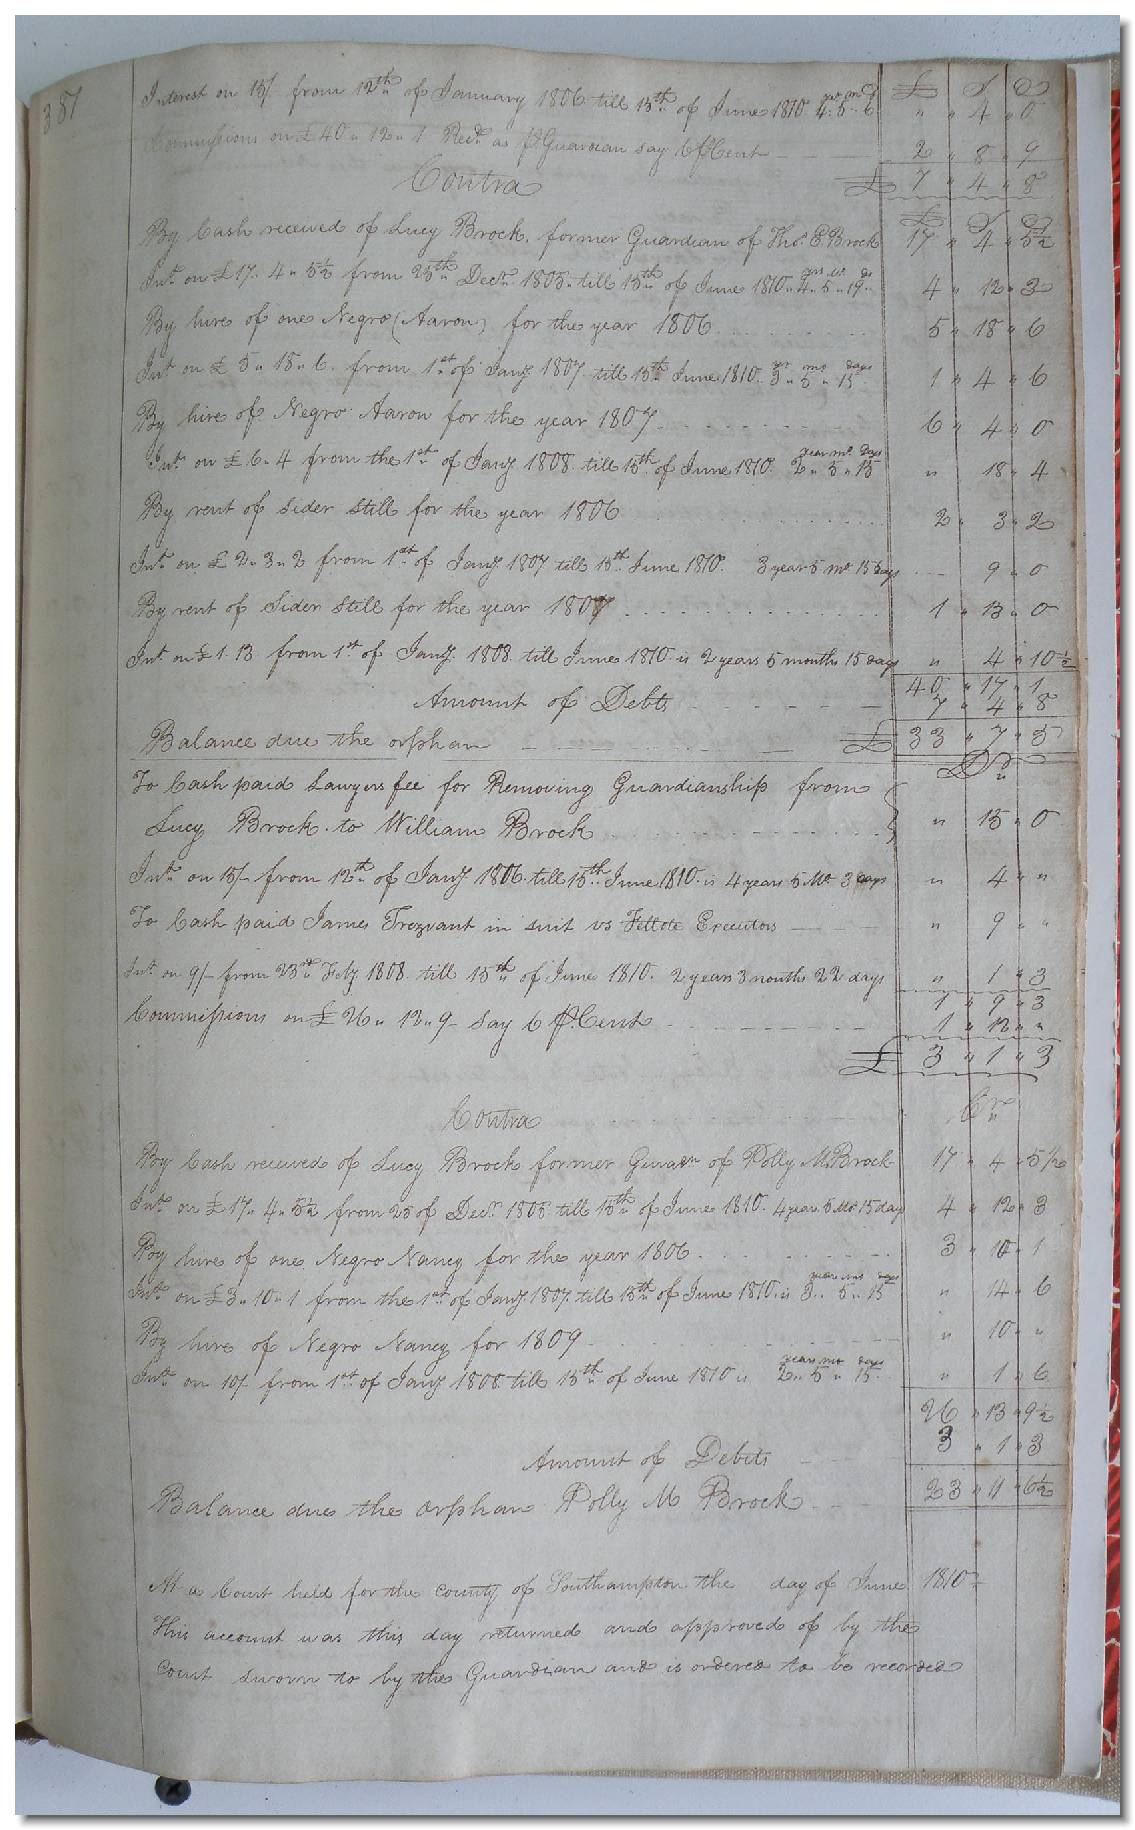 381
£ S D
Interest on 15/ from 12th of January 1806 till 15th of June 1810 yrs ms d 4 " 5 " 6 " " 4 " 0
Commissions on £40 " 12 " 1 Recd as pr Guardian say 6 pr Cent 2 " 8 " 9
Contra £ 7 " 4 " 8
£ S D
By Cash received of Lucy Brock, former Guardian of Thos E Brock 17 " 4 " 5½
Int on £17 " 4 " 5½ from 25th Decr 1805 till 15th of June 1810 " 4 " 5 " 19 " 4 " 12 " 3
By hire of one Negro (Aaron) for the year 1806 5 " 18 " 6
Int on £ 5 " 18 " 6 from 1st of Jany 1807 till 15th June 1810 yr ms days 3 " 5 " 15 1 " 4 " 6
By hire of Negro Aaron for the year 1807 6 " 4 " 0
Int on £6 " 4 from the 1st of Jany 1808 till 15th of June 1810 year ms days 2 " 5 " 15 " 18 " 4
By rent of Sider Still for the year 1806 2 " 3 " 2
Int on £ 2 " 3 " 2 from 1st of Jany 1807 till 15th June 1810 3 year 5 ms 15 days 9 " 0
By rent of Sider Still for the year 1807 1 " 13 " 0
Int on £1 " 13 from 1st of Jany 1808 till June 1810 is 2 years 5 months 15 days " 4 " 10½
40 " 17 " 1
Amount of Debts 7 " 4 " 8
Balance due the orphan £ 33 " 7 " 5
Dr
To Cash paid Lawyers fee for Removing Guardianship from
Lucy Brock to William Brock " 15 " 0
Int on 15/- from 12th of Jany 1806 till 15th June 1810 is 4 years 5 Ms 3 days " 4 " "
To Cash paid James Trezvant in suit vs Executors " 9 " "
Int on 9/- from 23rd Feby 1808 till 15th of June 1810. 2 years 3 months 22 days " 1 " 3
1 " 9 " 3
Commissions on £ 26 " 13 " 9 - Say 6 pr Cent 1 " 12 " "
£ 3 " 1 " 3
Contra Cr
By Cash received of Lucy Brock former of Polly M Brock 17 " 4 " 5½
Int on £17 " 4 " 5½ from 25 of Decr 1805 till 15th of June 1810. 4 year 5 Ms 15 day 4 " 12 " 3
By hire of one Negro Nancy for the year 1806 3 " 10 " 1
Int on £3 " 10 " 1 from the 1st of Jany 1807 till 15th of June 1810 is years ms days 3 " 5 " 15 " 14 " 6
By hire of Negro Nancy for 1809 " 10 " "
Int on 10/ from 1st of Jany 1808 till 15th of June 1810 is years ms days 2 " 5 " 15 " 1 " 6
26 " 13 " 9½
Amount of Debits 3 " 1 " 3
Balance due the orphan Polly M Brock 23 " 11 " 6½
At a Court held for the county of Southampton the day of June 1810
This account was this day returned and approved of by the
Court sworn to by the Guardian and is ordered to be recorded